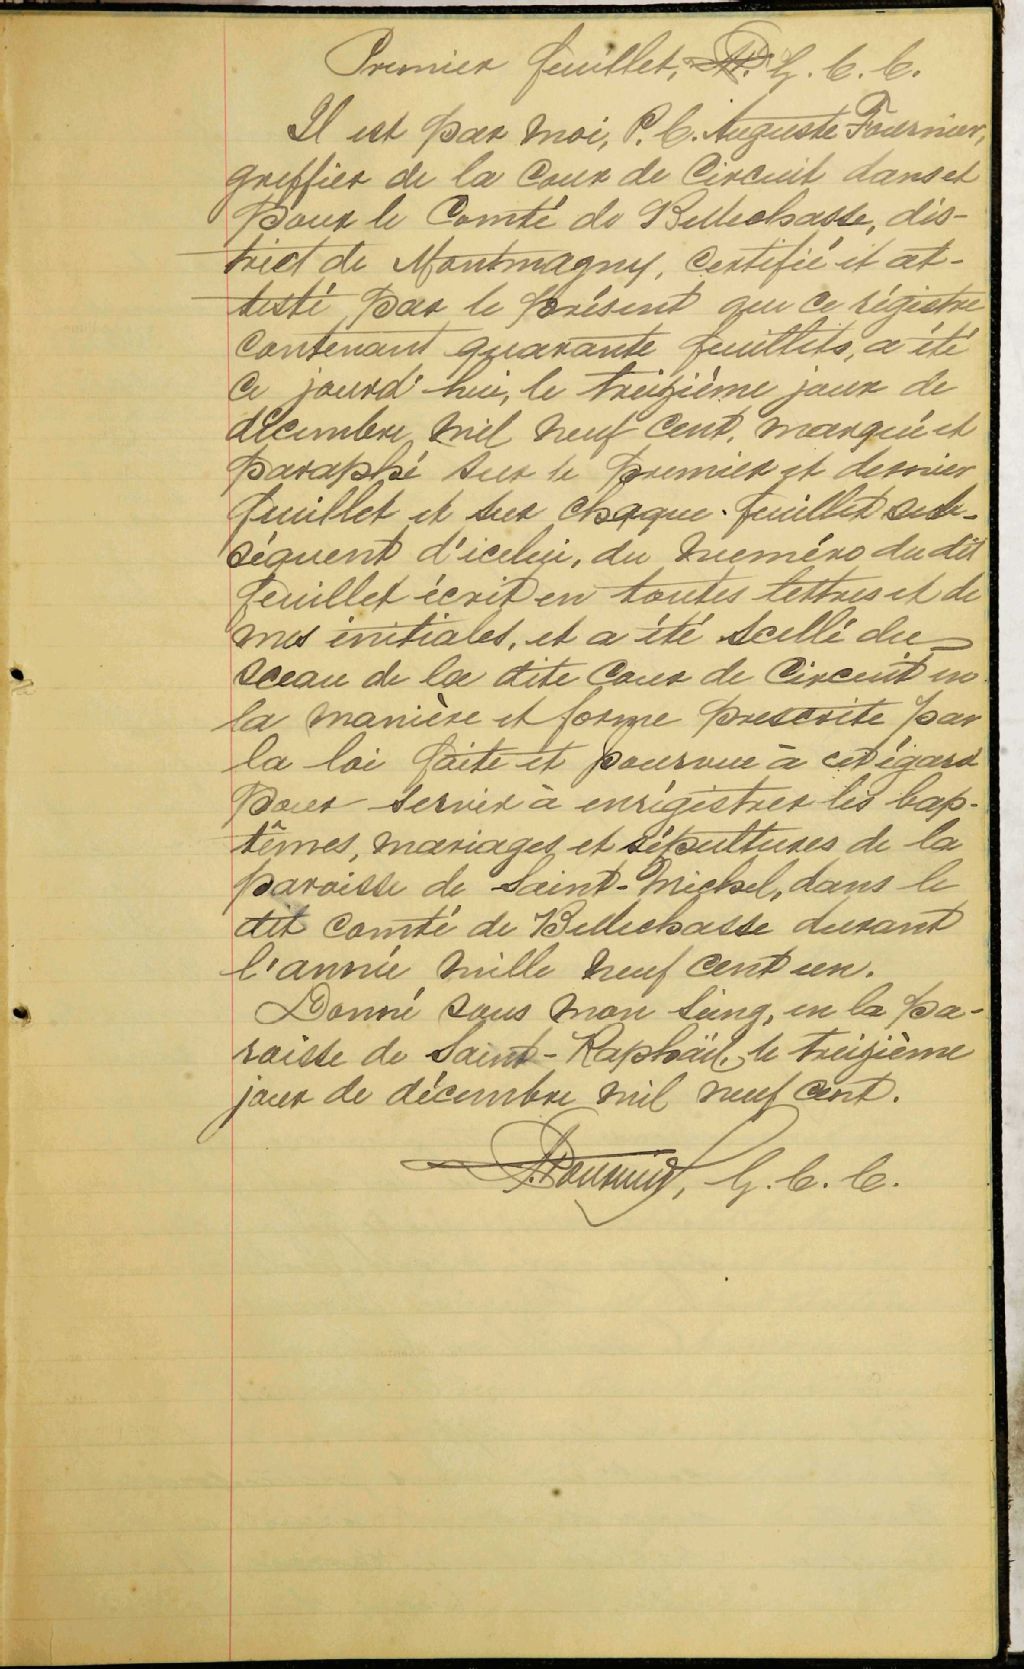 Premier feuillet, G. C. C.
Il est par moi, P. C. Auguste Fournier,
greffier de la Cour de Circuit dans et
pour le Comté de Bellechasse, dis-
trict de Montmagny, certifié et at-
testé par le présent que ce régistre
contenant quarante feuillets, a été
ce jourd'hui, le treizième jour de
décembre mil neuf cent, marqué et
paraphé sur le premier et dernier
feuillet et sur chaque feuillet sub-
séquent d'icelui, du numéro du dit
feuillet écrit en toutes lettres et de
mes initiales, et a été scellé du
sceau de la dite Cour de Circuit en
la manière et forme prescrite par
la loi faite et pourvue à cet égard
pour servir à enrégistrer les bap-
têmes, mariages et sépultures de la
paroisse de Saint-Michel, dans le
dit comté de Bellechasse durant
l'année mille neuf cent un.
Donné sous mon seing, en la pa-
roisse de Saint-Raphäel, le treizième
jour de décembre mil neuf cent.
A. Fournier, G. C. C.